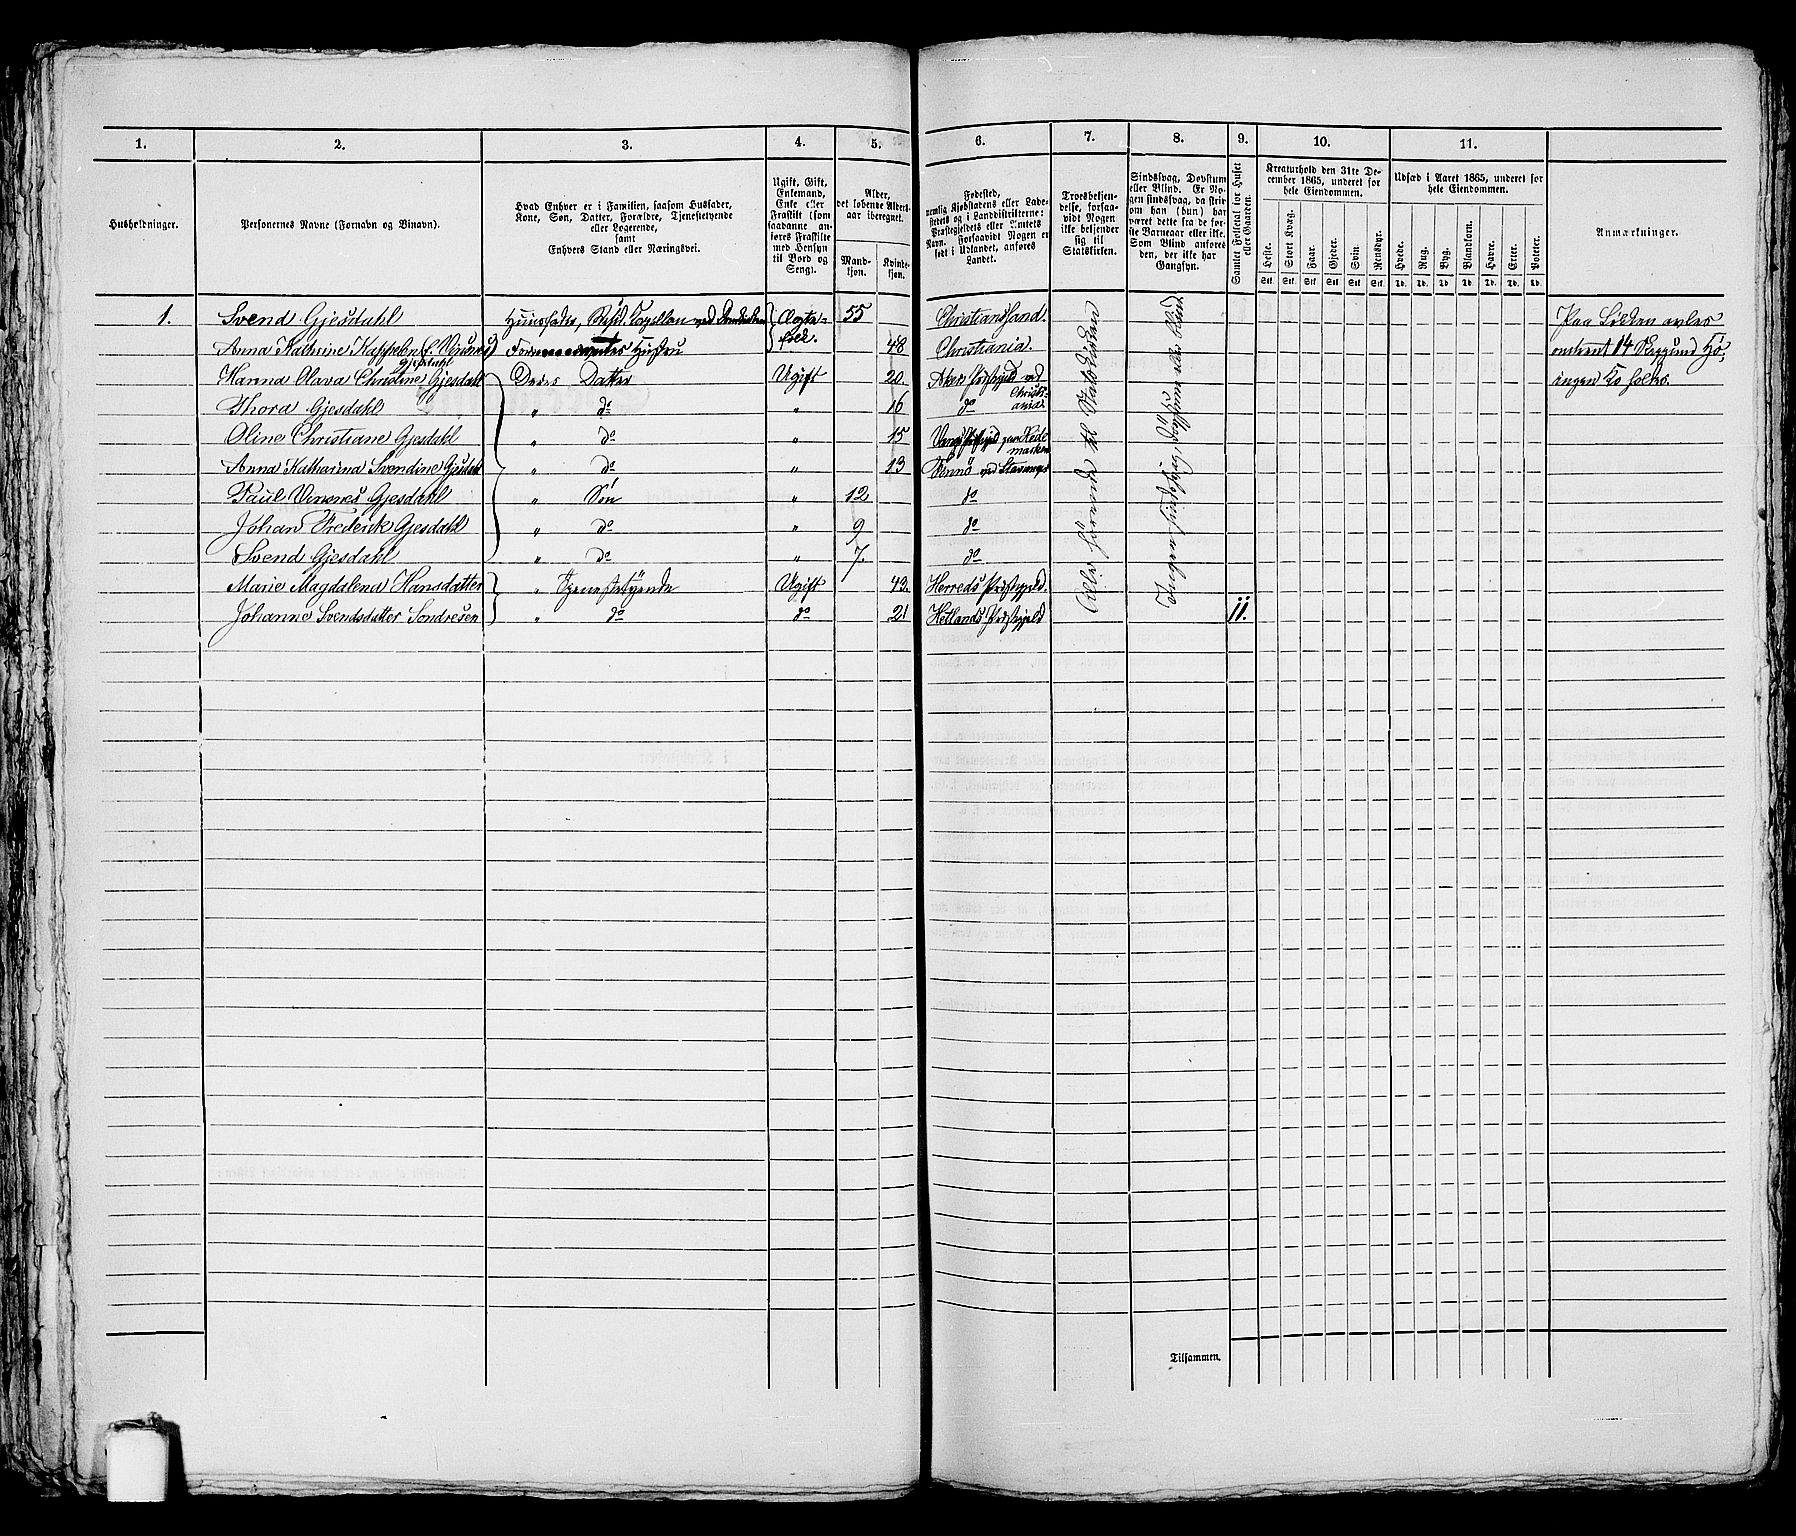 1. 2. 3. 4. 5. 6. 7. 8. 9. 10. 11.
Husholdninger.
Personernes Navne (Fornavn og Binavn).
Hvad Enhver er i Familien, saasom Husfader,
Kone, Søn, Datter, Forældre, Tjenestetyende
eller Logerende,
samt
Enhvers Stand eller Næringsvei.
Ugift, Gift,
Enkemand,
Enke eller
Fraskilt (som
saadanne an-
føres Fraskilte
med Hensyn
til Bord og
Seng).
Alder,
det løbende Alders-
aar iberegnet.
Mand-
kjøn.
Kvinde-
kjøn.
Fødested,
nemlig Kjøbstadens eller Lade-
stedets og i Landdistrikterne:
Præstegjeldets eller Amtets
Navn. Forsaavidt Nogen er
født i Udlandet, anføres
Landet.
Troesbekjen-
delse, forsaa-
vidt Nogen
ikke bekjender
sig til
Statskirken.
Sindssvag, Døvstum
eller Blind. Er No-
gen sindssvag, da skri-
ves om han (hun) har
været dette fra de for-
ste Barneaar eller ikke.
Som Blind anføres
den, der ikke har
Gangsyn.
Samlet Folketal for Huset
eller Gaarden.
Kreaturhold den 31te De-
cember 1865, underet for
hele Eiendommen.
Heste.
Stort Kvæg.
Faar.
Gjeder.
Svin.
Rensdyr.
Stk. Stk. Stk. Stk. Stk. Stk.
Udsæd i Aaret 1865, underet for
hele Eiendommen.
Hvede.
Rug.
Byg.
Blandkorn.
Havre.
Erter.
Poteter.
Td. Td. Td. Td. Td. Td. Td.
Anmærkninger.
1. Svend Gjesdahl Huusfader, Resid. Capellan ved 55 Christiansand. Paa Løkken avles
Anna Kathrine Kappelen Hustru 48 Christiania. 14
Gjesdahl
Hanna Olava Christine Gjesdahl Deres Datter Ugift 20 Aker Præstegjeld ved
Christi-
ania
Thora Gjesdahl " do " 16 do
Oline Christiane Gjesdahl " do " 15 Vangs Præstegjeld paa Hede
marken
Anna Katharina Svendine Gjesdahl " do " 13 ved Stavanger
Paul Gjesdahl " Søn " 12 do
Johan Frederik Gjesdahl " do " 9 do
Svend Gjesdahl " do " 7. do
Marie Magdalena Hansdatter " Tjenestetyende Ugift 42 Herreds Præstegjeld.
Johanne Svendsdatter Sondresen " do do 21 Hetlands Præstegjeld 11.
Alle hørende til Statskirken
Ingen sindssvag, døvstum eller Blind.
Tilsammen.